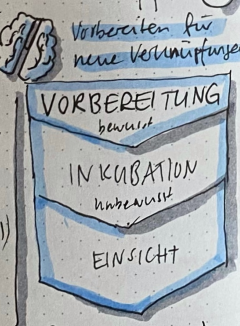 Vorbereiten für
neue Verknüpfungen
VORBEREITUNG
bewusst
INKUBATION
unbewusst
EINSICHT